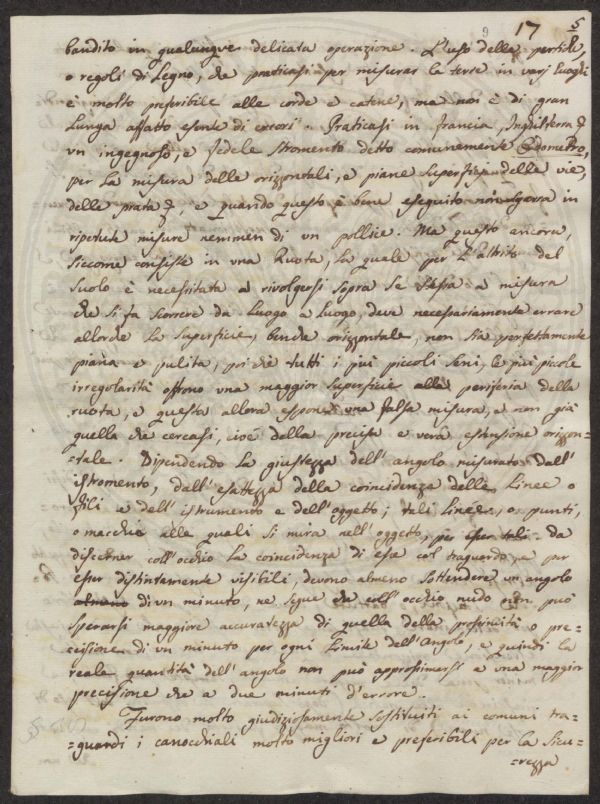 9 17 5
bandito in qualunque delicata operazione. L'uso delle pertiche,
o regoli di Legno, che praticasi per misurar la terre in varj Luoghi
è molto preferibile alle corde e catene, ma non è di gran
Lunga affatto esente di errori. Praticasi in Francia, Inghilterra &
vn ingegnoso, e fedele stromento detto comunemente Odometro,
per La misura delle orizzontali, e piane Superfizie delle vie,
delle prata &, e quando questo è bene eseguito non sgarra in
ripetute misure nemmen di vn pollice. Ma questo ancora,
siccome consiste in vna Ruota, La quale per L'attrito del
Suolo è necessitata a rivolgersi sopra Se stessa a misura
che si fa scorrere da Luogo a Luogo, deve necessariamente errare
allorche La Superficie, benche orizzontale, non sia perfettamente
piana e pulita, poi che tutti i più piccoli seni, le più picole
irregolarità offrono vna maggior superficie alla periferia della
ruota, e questa allora espone vna falsa misura, e non già
quella che cercasi, cioè della precisa e vera estensione orizon-
-tale. Dipendendo La giustezza dell'angolo misurato dall'
istromento, dall'esattezza della coincidenza delle Linee o
fili e dell'istrumento e dell'oggetto; tali Linee, o punti,
o macchie alle quali si mira nell'oggetto, per esser tali da
discerner coll'occhio La coincidenza di esse col traguardo, e per
esser distintamente visibili, devono almeno sottendere vn angolo
almeno di vn minuto, ne segue che coll'occhio nudo non può
sperarsi maggiore accuratezza di quella della prossimità o pre-
-cisione di vn minuto per ogni Limite dell'Angolo, e quindi la
reale quantità dell'angolo non può approssimarsi a vna maggior
precisione che a due minuti d'errore.
Furono molto giudiziosamente sostituiti ai comuni tra-
-guardi i canocchiali molto migliori e preferibili per la sicu-
-rezza